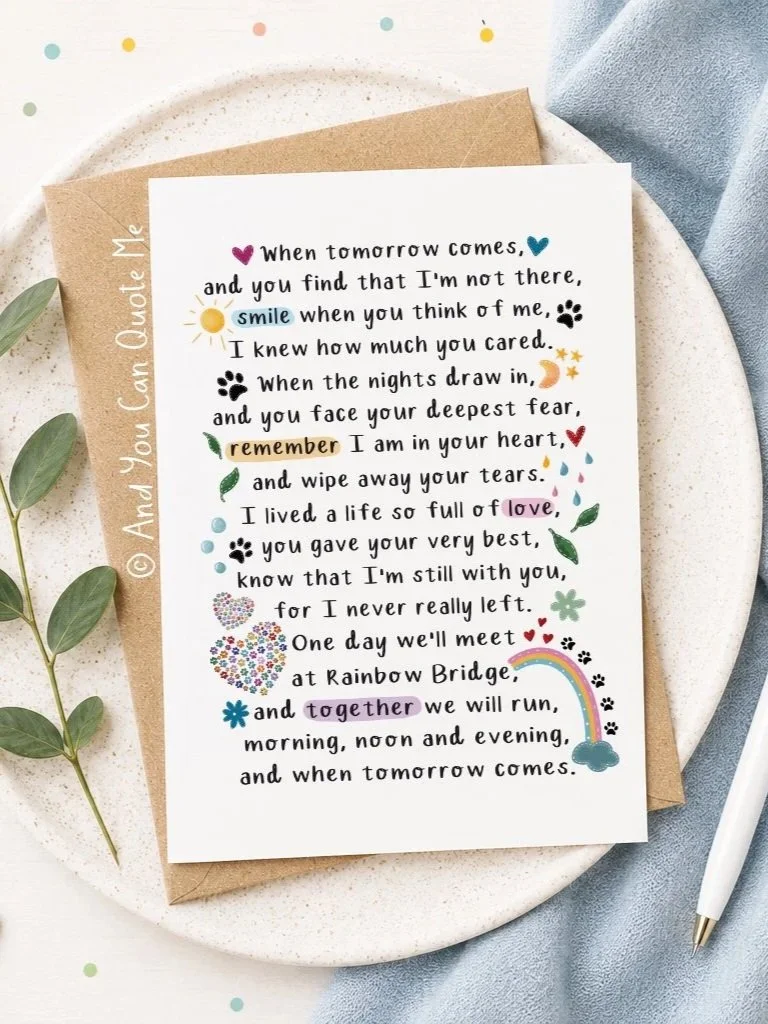 When tomorrow comes,
and you find that I'm not there,
smile when you think of me,
I knew how much you cared.
When the nights draw in,
and you face your deepest fear,
remember I am in your heart,
and wipe away your tears.
I lived a life so full of love,
you gave your very best,
know that I'm still with you,
for I never really left.
One day we'll meet
at Rainbow Bridge,
and together we will run,
morning, noon and evening,
and when tomorrow comes.
© And You Can Quote Me